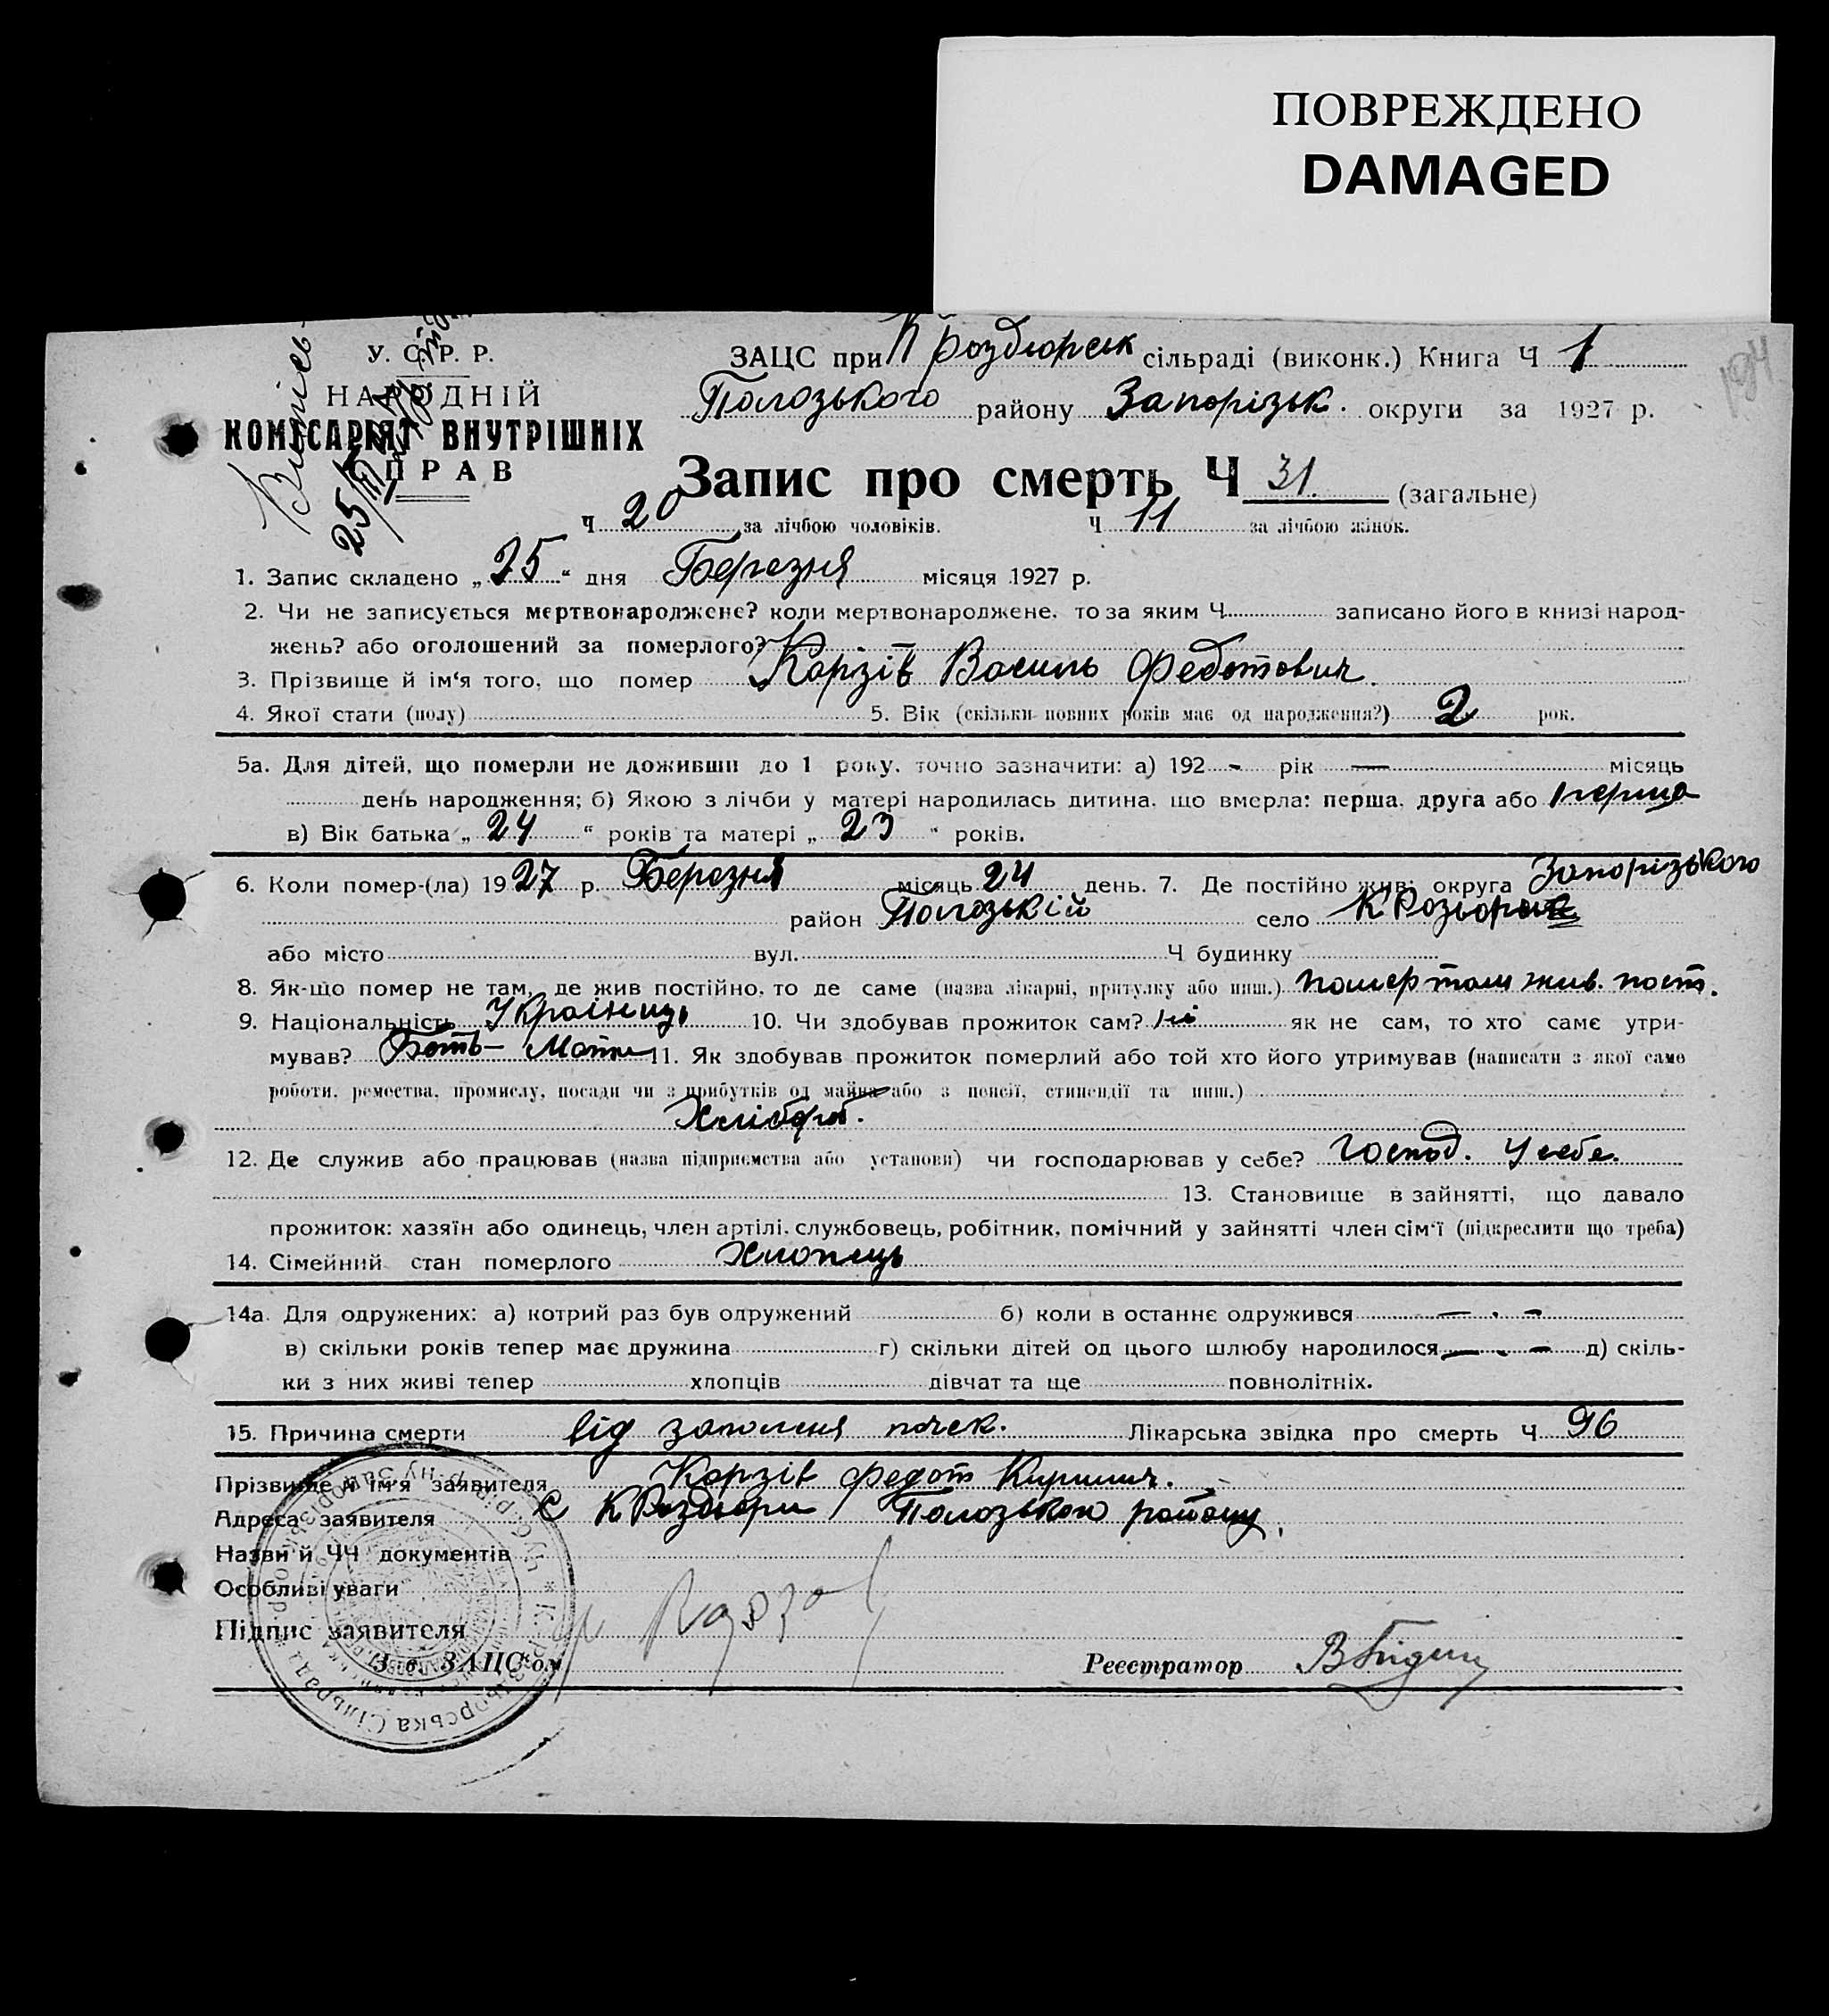 ПОВРЕЖДЕНО
DAMAGED
194
У. С. Р. Р.
НАРОДНІЙ
КОМІСАРІЯТ ВНУТРІШНІХ
СПРАВ
Випись
25/III
ЗАЦС при К Роздорськ сільраді (виконк.) Книга Ч 1
Пологзького району Запорізьк. округи за 1927 р.
Запис про смерть Ч 31. (загальне)
Ч 20 за лічбою чоловіків. Ч 11 за лічбою жінок.
1. Запис складено „ 25 “ дня Березня місяця 1927 р.
2. Чи не записується мертвонароджене? коли мертвонароджене, то за яким Ч записано його в книзі народ-
жень? або оголошений за померлого?
3. Прізвище й ім‘я того, що помер Карзів Василь Федотович.
4. Якої стати (полу) 5. Вік (скільки повних років має од народження?) 2 рок.
5а. Для дітей, що померли не доживши до 1 року, точно зазначити: а) 192 - рік — місяць
день народження; б) Якою з лічби у матері народилась дитина, що вмерла: перша, друга або перша
в) Вік батька „ 24 “ років та матері „ 23 “ років.
6. Коли помер-(ла) 1927 р. Березня місяць 24 день. 7. Де постійно жив: округа Запорізького
район Пологзькій село К Роздори
або місто вул. Ч будинку
8. Як-що помер не там, де жив постійно, то де саме (назва лікарні, притулку або инш.) помер там жив. пост.
9. Національність Українець 10. Чи здобував прожиток сам? ні як не сам, то хто саме утри-
мував? Бать- Мати 11. Як здобував прожиток померлий або той хто його утримував (написати з якої саме
роботи, ремества, промислу, посади чи з прибутків од майна або з пенсії, стипендії та инш.)
Хлібороб.
12. Де служив або працював (назва підприємства або установи) чи господарював у себе? Господ. у себе.
13. Становище в зайнятті, що давало
прожиток: хазяїн або одинець, член артілі, службовець, робітник, помічний у зайнятті член сім‘ї (підкреслити що треба)
14. Сімейний стан померлого Хлопець
14а. Для одружених: а) котрий раз був одружений б) коли в останнє одружився — . -
в) скільки років тепер має дружина г) скільки дітей од цього шлюбу народилося — . - д) скіль-
ки з них живі тепер хлопців дівчат та ще повнолітніх.
15. Причина смерти від запаленя почек. Лікарська звідка про смерть Ч 96
Прізвище й ім‘я заявителя Карзів Федот Кирилич.
Адреса заявителя С К Роздори Пологзького району.
Назви й ЧЧ документів
Особливі уваги
Підпис заявителя Карзов
Зав. ЗАЦС‘ом Реєстратор